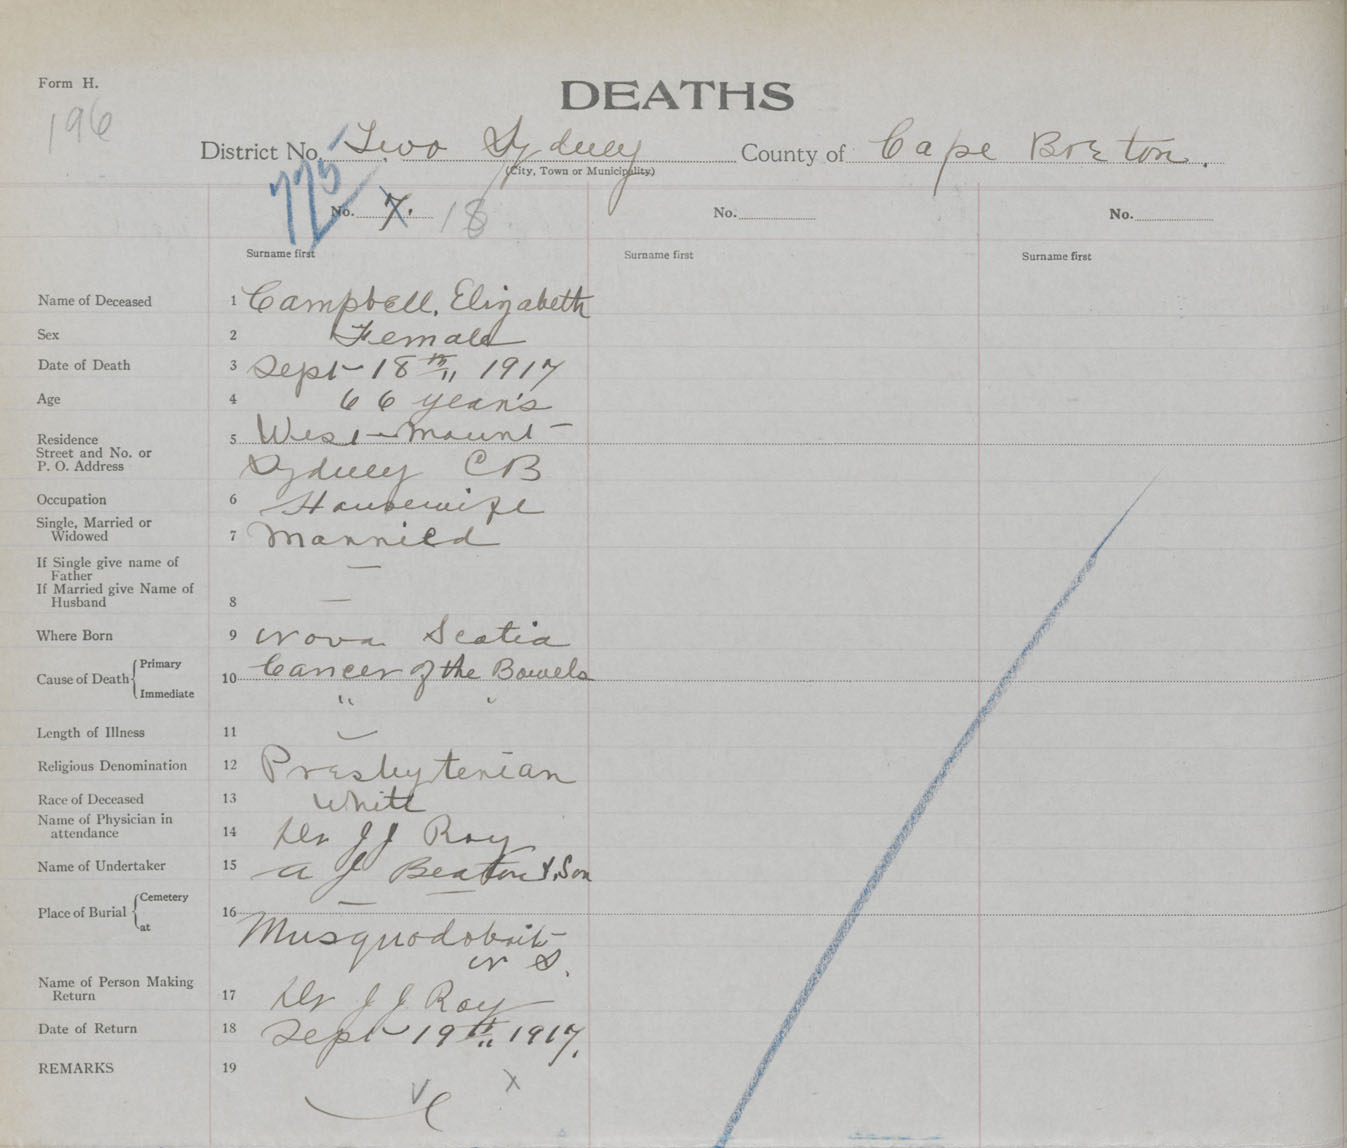 Form H.
DEATHS
196
District No. Two Sydney County of Cape Breton.
(City, Town or Municipality)
775
No. 7. 18 No. No.
Surname first Surname first Surname first
Name of Deceased 1 Campbell, Elizabeth
Sex 2 Female
Date of Death 3 Sept 18th 1917
Age 4 66 year's
Residence 5 West mount
Street and No. or
P. O. Address Sydney C B
Occupation 6 Housewife
Single, Married or
Widowed 7 Married
If Single give name of
Father —
If Married give Name of
Husband 8 —
Where Born 9 Nova Scotia
Cause of Death Primary 10 Cancer of the Bowels
Immediate " "
Length of Illness 11
Religious Denomination 12 Presbyterian
Race of Deceased 13 White
Name of Physician in
attendance 14 Dr J J Roy
Name of Undertaker 15 A J Beaton & Son
Place of Burial Cemetery 16 —
at Musquodoboit
N S.
Name of Person Making
Return 17 Dr J J Roy
Date of Return 18 Sept 19th 1917.
REMARKS 19